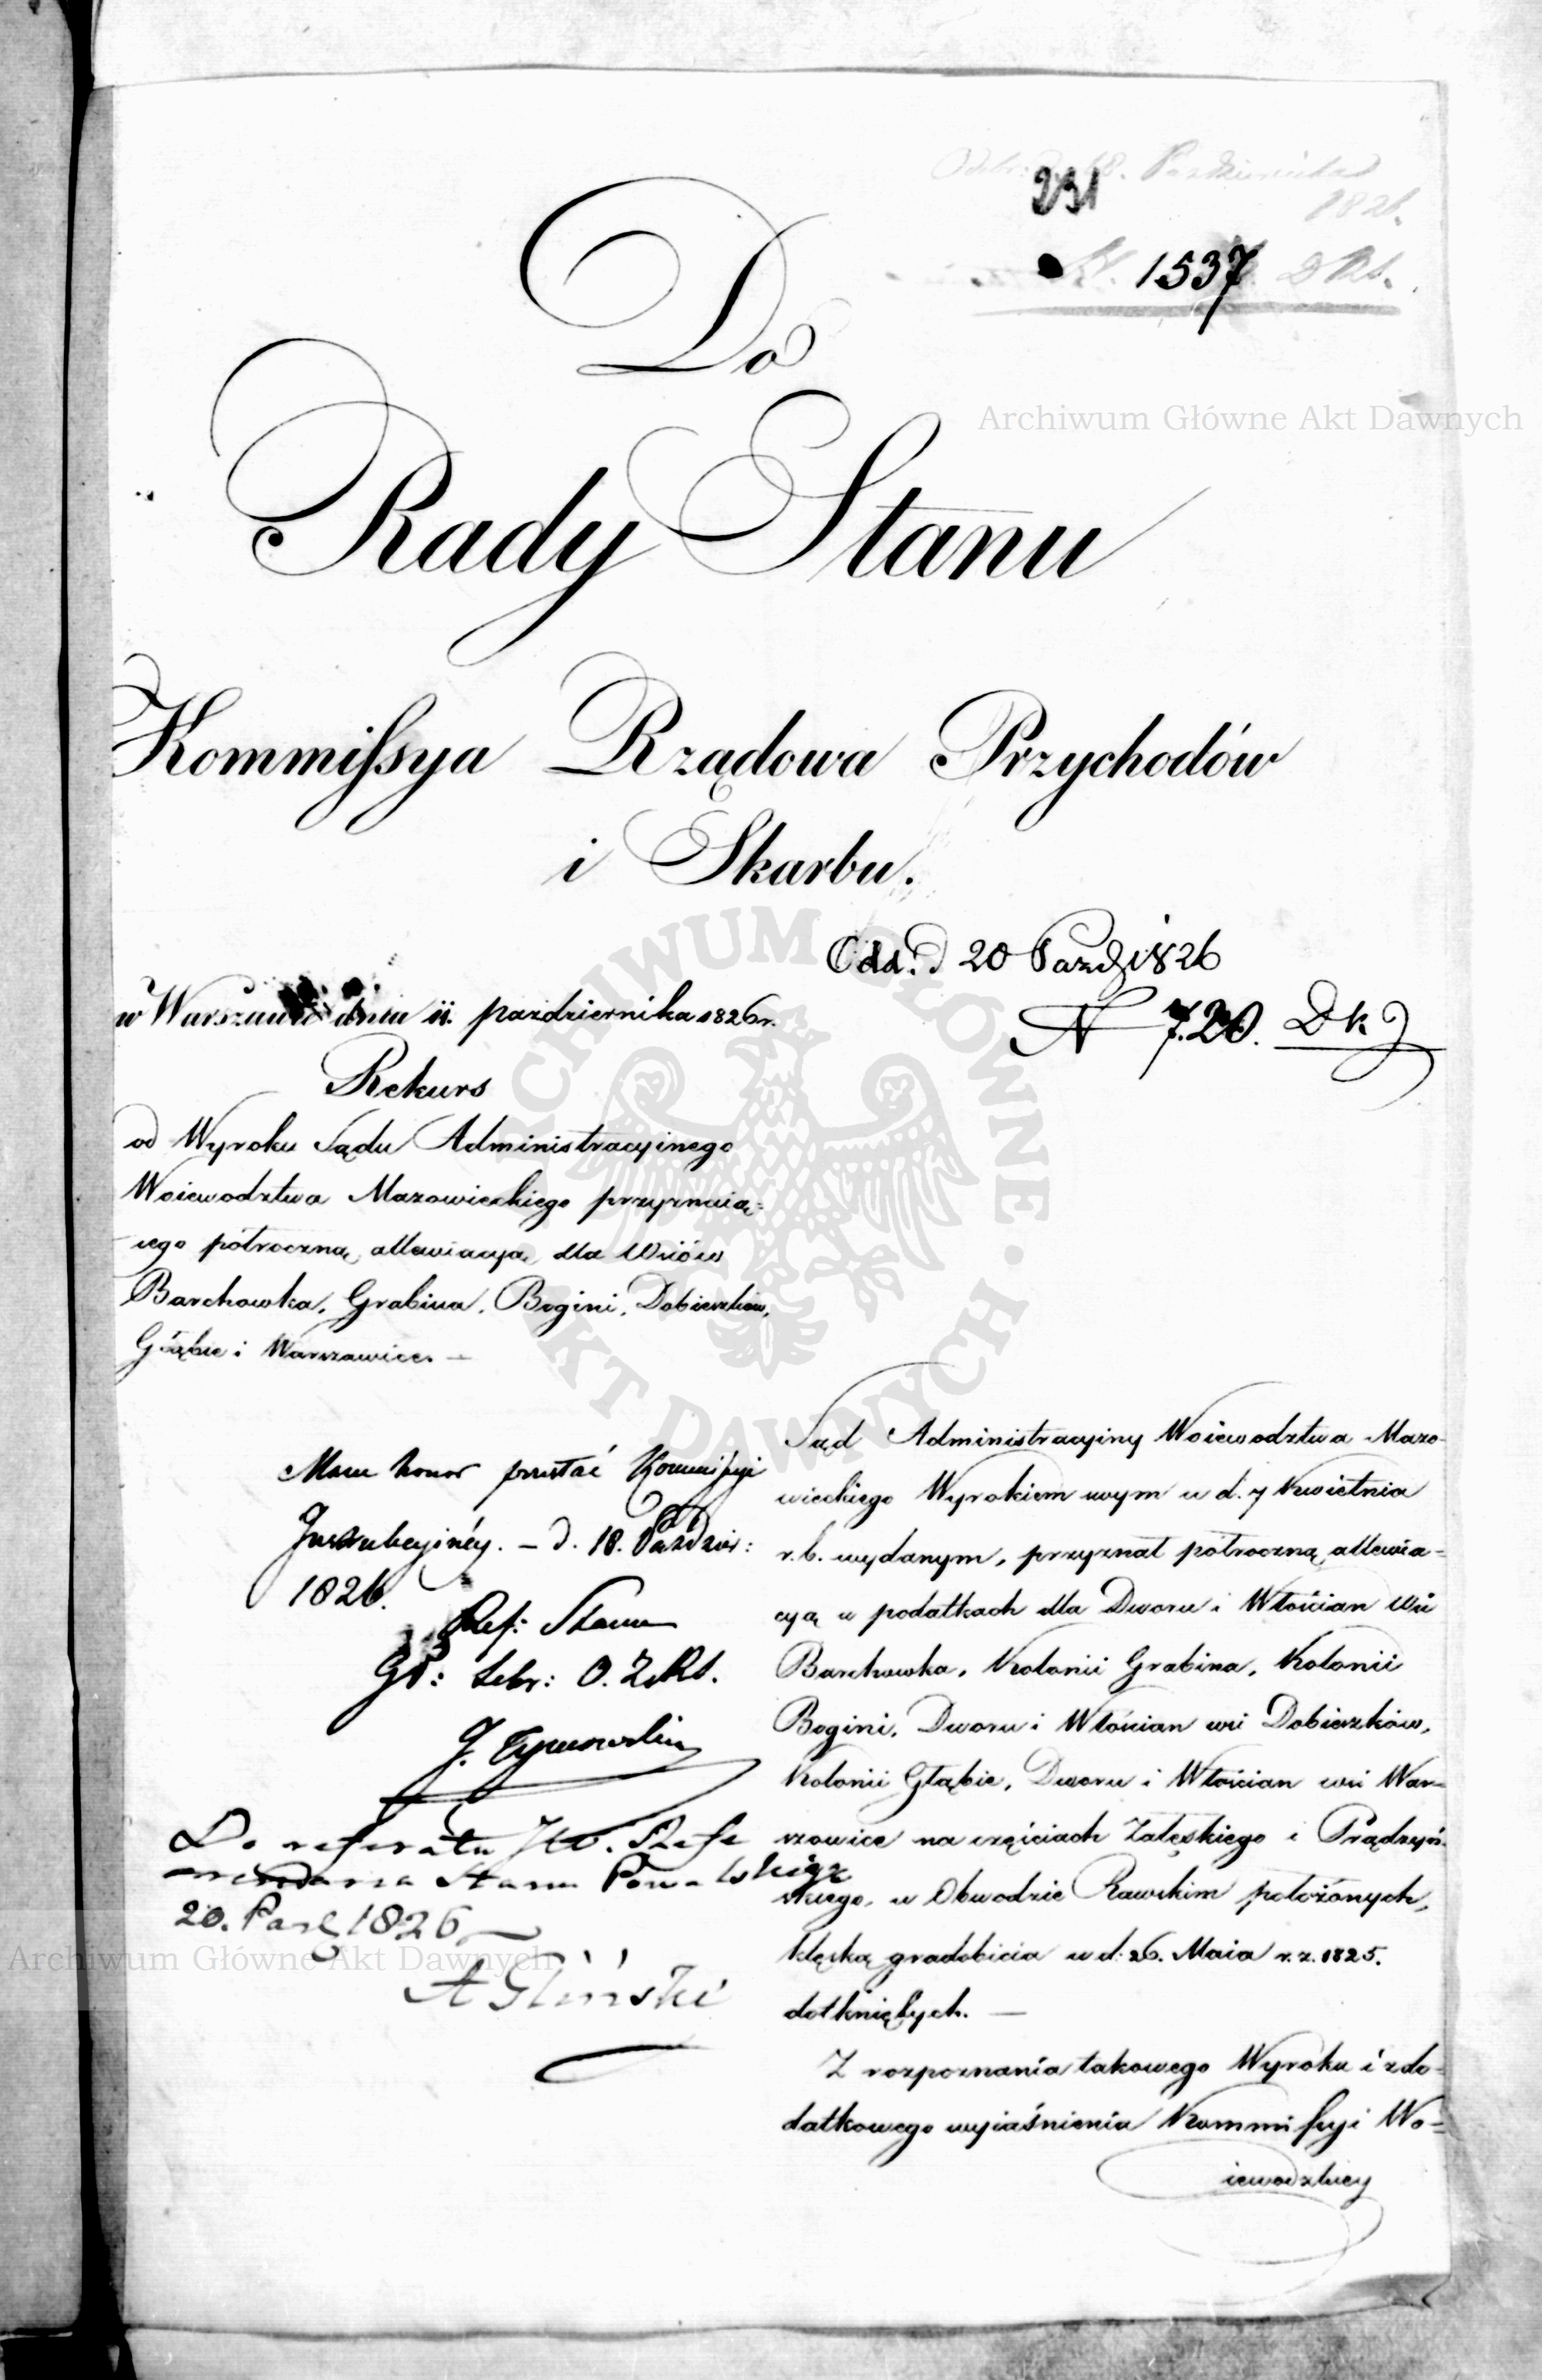 231
1826.
1537
Do
Archiwum Główne Akt Dawnych
Rady Stanu
Kommissya Rządowa Przychodów
i Skarbu.
Odd. d 20 Paźdz 1826
N 720. Dk
w Warszawie dnia 11. pazdziernika 1826 r.
Rekurs
od Wyroku Sądu Administracyinego
Woiewodztwa Mazowieckiego przyznaią=
cego półroczną allewiacyą dla Wsiów
Barchowka, Grabina, Bogini, Dobieszków,
Głąbie i Warszawice. —
Mam honor przesłać Kommissyi
Instrukcyiney. – d. 18. Paździer:
1826.
Ref: Stanu
J. Tymowski
Do referatu JW. Refe
rendarza Stanu
20. Paź 1826
A Gliński
Sąd Administracyiny Woiewodztwa Mazo-
wieckiego Wyrokiem swym w d. 7 Kwietnia
r. b. wydanym, przyznał półroczną allewia=
cyą w podatkach dla Dworu i Włościan Wsi
Barchowka, Kolonii Grabina, Kolonii
Bogini, Dworu i Włościan wsi Dobieszków,
Kolonii Głąbie, Dworu i Włościan wsi War=
szowice na częściach Zalęskiego i Prądzyń-
skiego, w Obwodzie Rawskim położonych,
klęską gradobicia w d. 26. Maia r. z. 1825.
dotkniętych. —
Z rozpoznania takowego Wyroku i z do=
datkowego wyiaśnienia Kommissyi Wo=
iewodzkiey
ARCHIWUM GŁÓWNE AKT DAWNYCH
Archiwum Główne Akt Dawnych